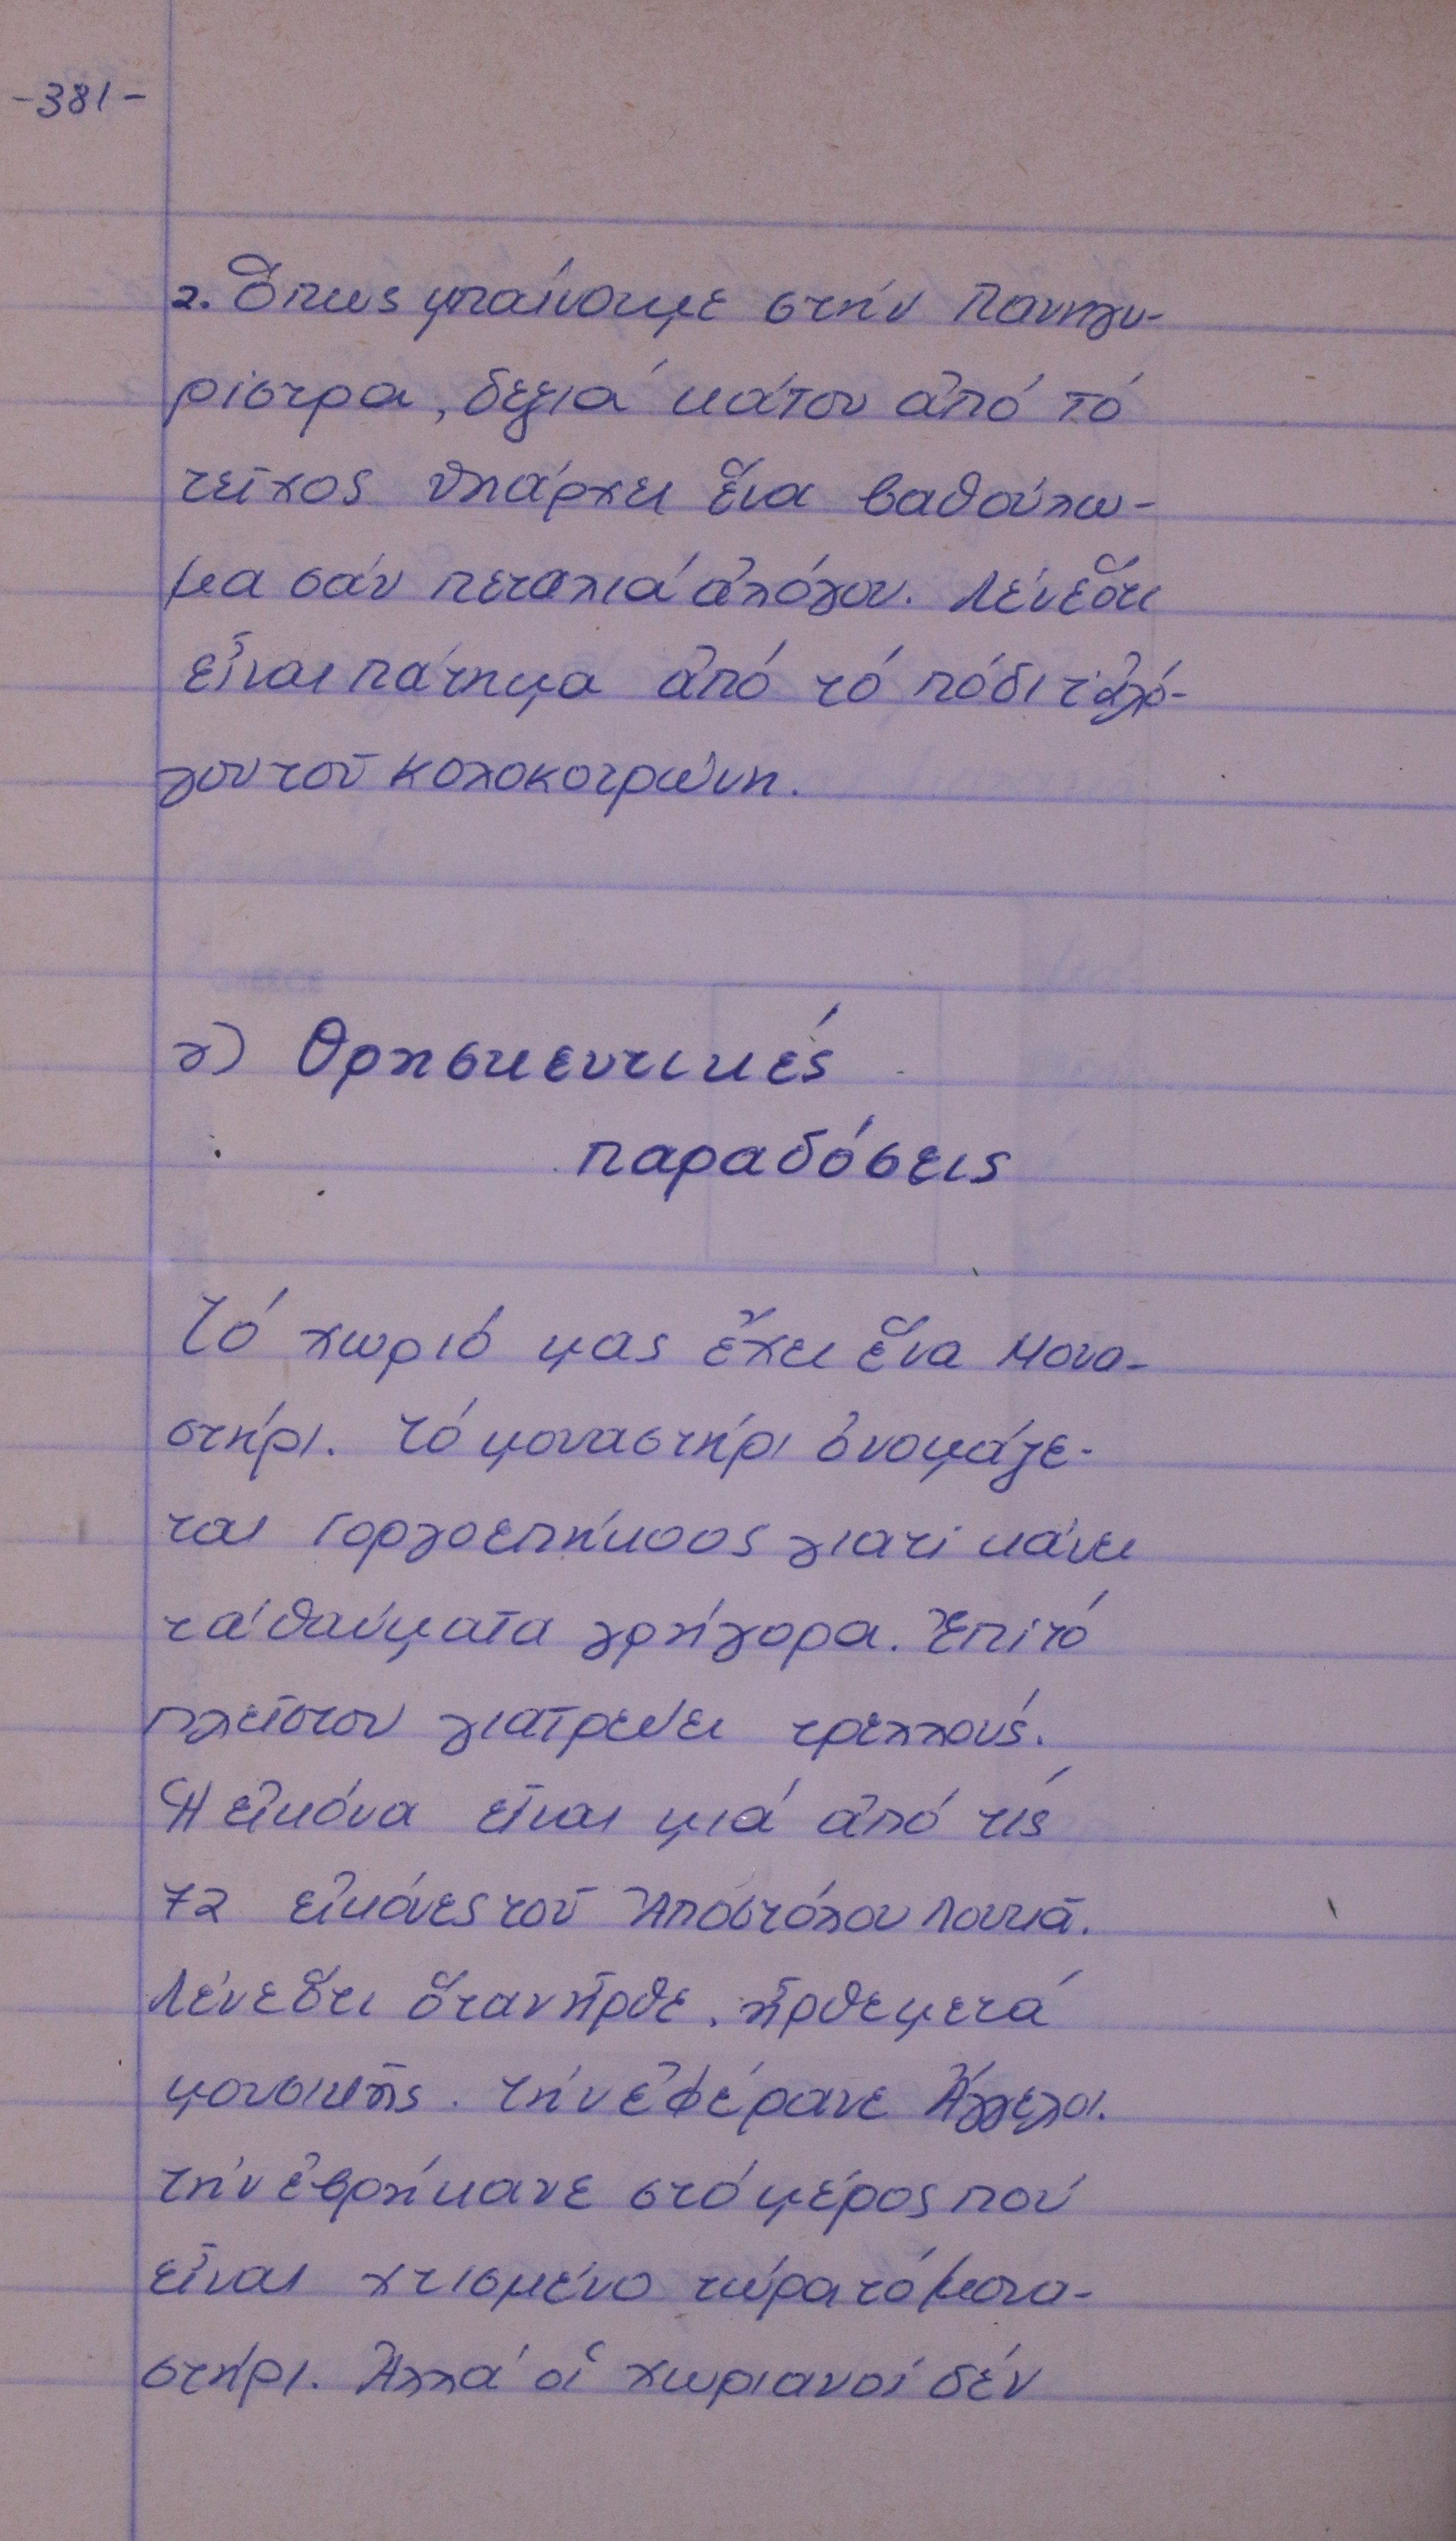 -381-
2. Ὅπως μπαίνουμε στήν Πανηγυ-
ρίστρα, δεξιά κάτου ἀπό τό
τεῖχος ὑπάρχει ἕνα βαθούλω-
μα σάν πεταλιά ἀλόγου. Λένε ὅτι
εἶναι πάτημα ἀπό τό πόδι τ' ἀλό-
γου τοῦ Κολοκοτρώνη.
γ) Θρησκευτικές
παραδόσεις
Τό χωριό μας ἔχει ἕνα Μονα-
στήρι. Τό μοναστήρι ὀνομάζε-
ται Γοργοεπήκοος γιατί κάνει
τά θαύματα γρήγορα. Ἐπί τό
πλεῖστον γιατρεύει τρελλούς.
Ἡ εἰκόνα εἶναι μιά ἀπό τίς
72 εἰκόνες τοῦ Ἀποστόλου Λουκᾶ.
Λένε ὅτι ὅταν ἦρθε, ἦρθε μετά
μουσικῆς. Τήν ἐφέρανε Ἄγγελοι.
Τήν ἐβρήκανε στό μέρος πού
εἶναι χτισμένο τώρα τό μονα-
στήρι. Ἀλλά οἱ χωριανοί δέν